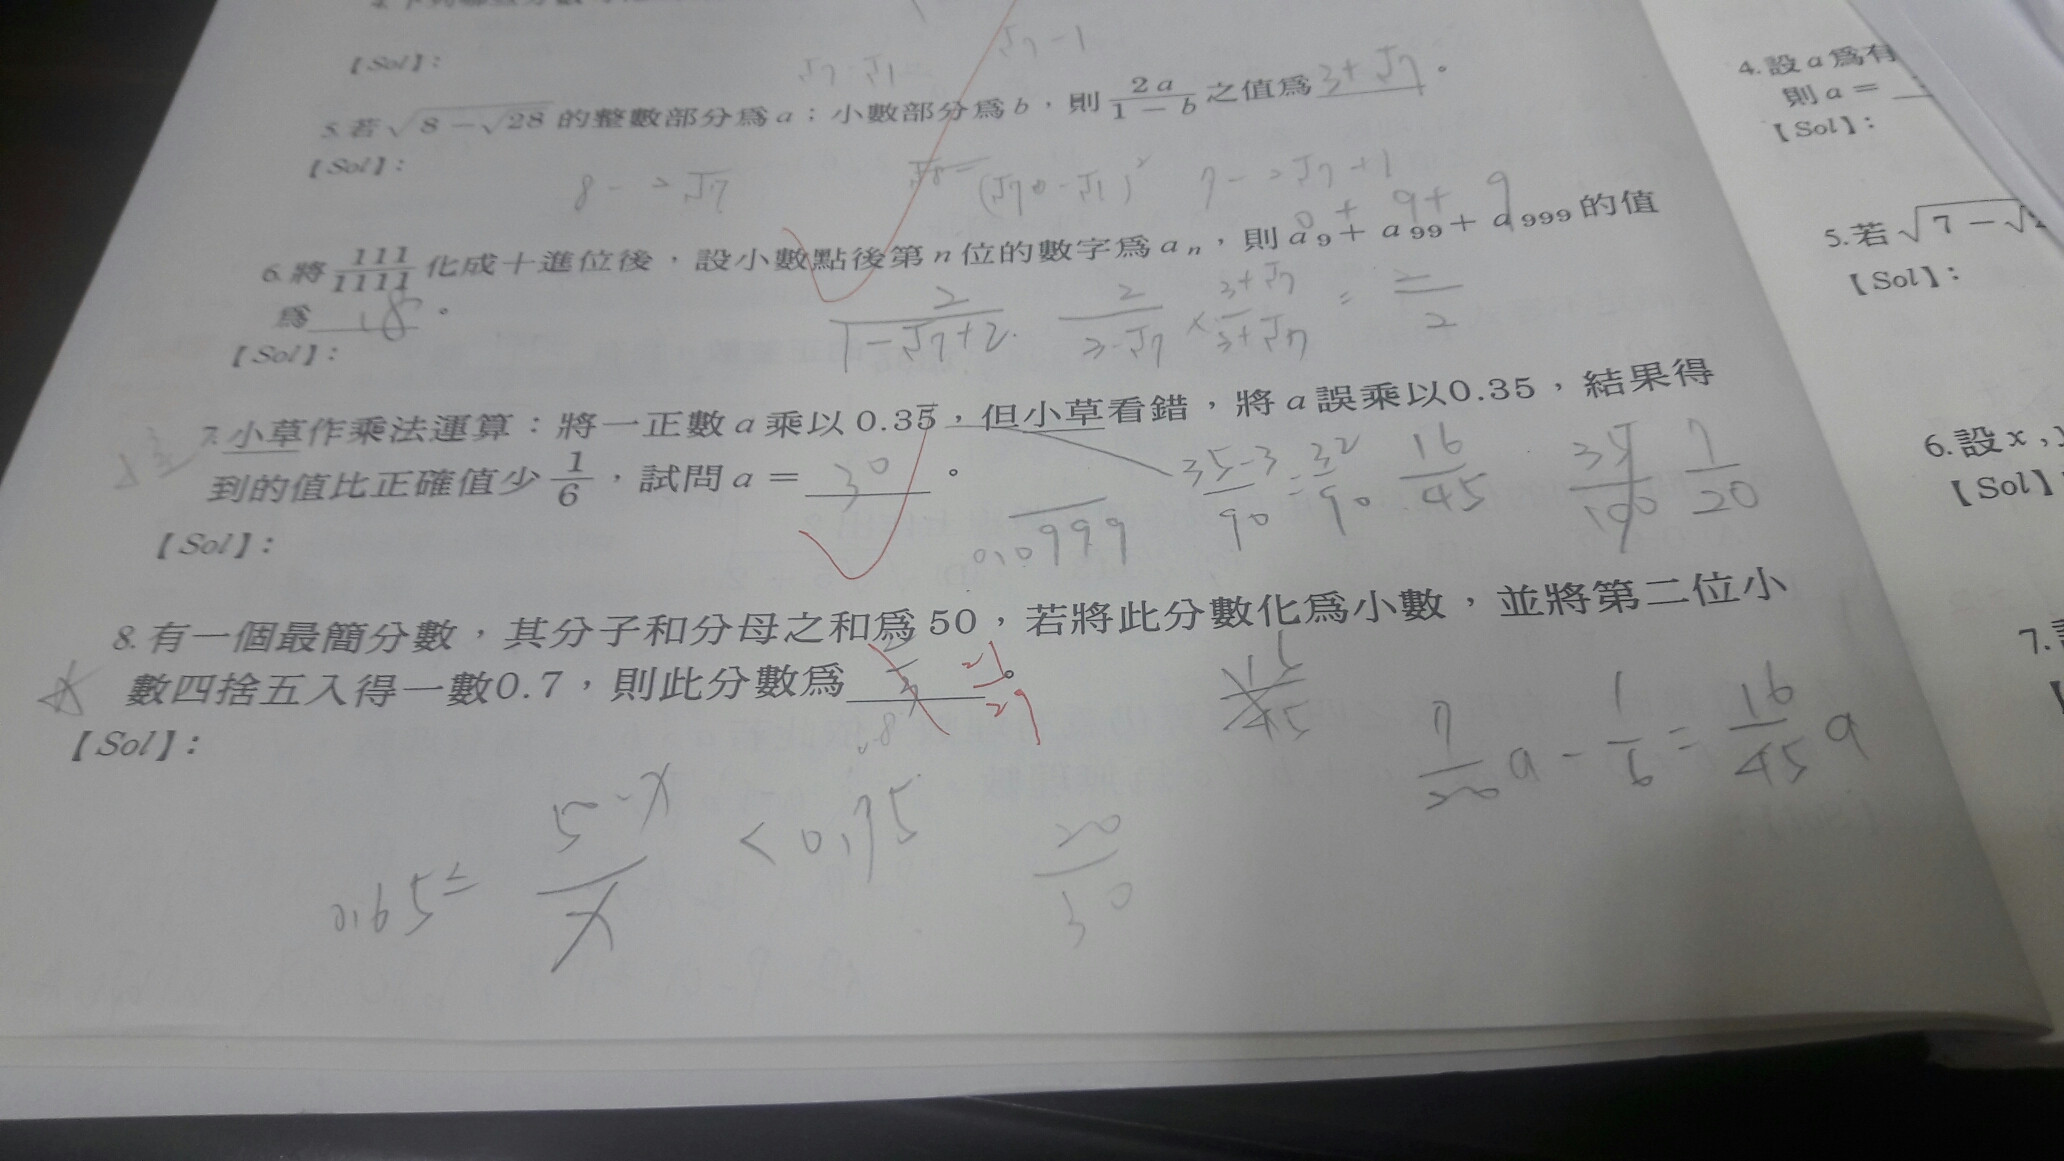 【Sol】:
√7-√1 √7-1
5. 若√8-√28的整數部分爲a；小數部分爲b，則2a/1-b之值爲3+√7。
【Sol】:
8-2√7 (√7-√1)² 7-2√7+1
0+ 9+ 9
6. 將111/1111化成十進位後，設小數點後第n位的數字爲aₙ，則a₉+a₉₉+a₉₉₉的值
爲18。
【Sol】:
2/1-√7+2 2/3-√7 × 3+√7/3+√7 = 2/2
7. 小草作乘法運算：將一正數a乘以0.35̅，但小草看錯，將a誤乘以0.35，結果得
到的值比正確值少1/6，試問a=30。
35-3/90=32/90 16/45 35/100 7/20
【Sol】:
0.0999
8. 有一個最簡分數，其分子和分母之和爲50，若將此分數化爲小數，並將第二位小
數四捨五入得一數0.7，則此分數爲2/3 21/29。
【Sol】:
16/45
7/20a-1/6=16/45a
0.65≤ 5-x/x <0.75
20/30
4. 設a爲有
則a=
【Sol】:
5. 若√7-√
【Sol】:
6. 設x,
【Sol】
7.